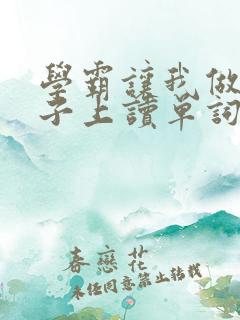 學霸讓我做
子上讀單詞
春戀花
未经同意禁止转载